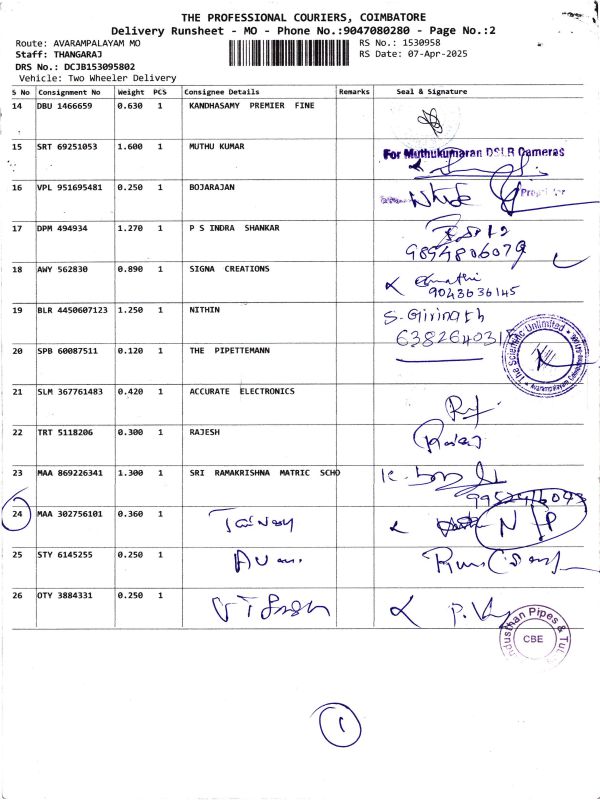 THE PROFESSIONAL COURIERS, COIMBATORE
Delivery Runsheet - MO - Phone No.:9047080280 - Page No.:2
Route: AVARAMPALAYAM MO
RS No.: 1530958
Staff: THANGARAJ
RS Date: 07-Apr-2025
DRS No.: DCJB153095802
Vehicle: Two Wheeler Delivery
S No Consignment No Weight PCS Consignee Details Remarks Seal & Signature
14 DBU 1466659 0.630 1 KANDHASAMY PREMIER FINE
15 SRT 69251053 1.600 1 MUTHU KUMAR
For Muthukumaran DSLR Cameras
16 VPL 951695481 0.250 1 BOJARAJAN
17 DPM 494934 1.270 1 P S INDRA SHANKAR
9894806079
18 AWY 562830 0.890 1 SIGNA CREATIONS
9043636145
19 BLR 4450607123 1.250 1 NITHIN S. Girinath
20 SPB 60087511 0.120 1 THE PIPETTEMANN
The Scientific Unlimited
21 SLM 367761483 0.420 1 ACCURATE ELECTRONICS
22 TRT 5118206 0.300 1 RAJESH
23 MAA 869226341 1.300 1 SRI RAMAKRISHNA MATRIC SCHO
24 MAA 302756101 0.360 1
25 STY 6145255 0.250 1
26 OTY 3884331 0.250 1
Industhan Pipes &
CBE
1